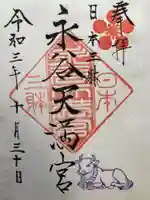 奉拝
日本三躰
永谷天満宮
令和三年十月三十日